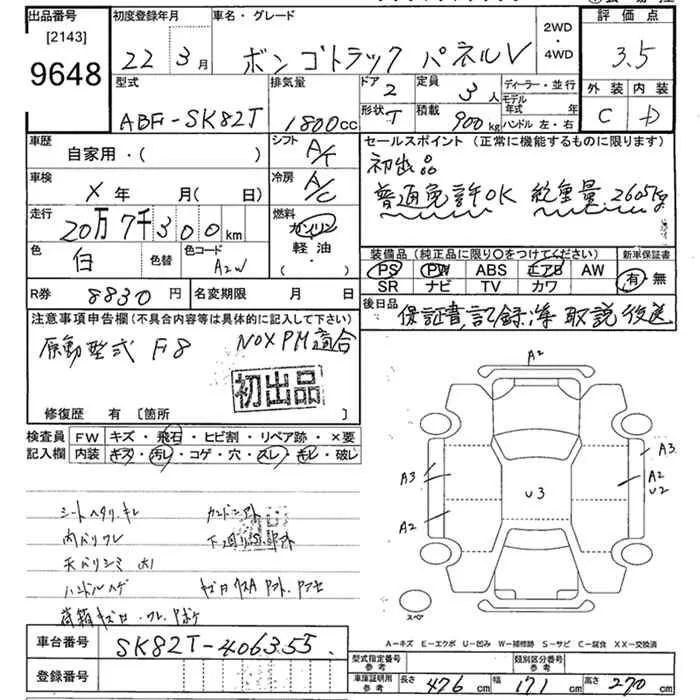 出品番号
[2143]
9648
初度登録年月
22年 3月
車名・グレード
ボンゴトラック パネルV
2WD
・
4WD
評価点
3.5
外装 内装
C D
型式
ABF-SK82T
排気量
1800cc
ドア 2
形状 T
定員
3人
積載
900kg
ディーラー・並行
モデル年式 年
ハンドル 左・右
車歴
自家用・( )
シフト A/T
セールスポイント (正常に機能するものに限ります)
初出品
普通免許OK 総重量2605kg
車検
X年 月( 日)
冷房 A/C
走行
20万7千300km
燃料
ガソリン
軽油
・( )
色 白
色替
色コード
A2W
装備品 (純正品に限り○をつけてください)
PS PW ABS エアB AW
SR ナビ TV カワ
新車保証書
有・無
R券 8830円
名変期限 月 日
後日品
保証書,記録簿 取説後送
注意事項申告欄 (不具合内容等は具体的に記入して下さい)
原動型式 F8 NOXPM適合
初出品
修復歴 有 [箇所
検査員記入欄
FW キズ・飛石・ヒビ割・リペア跡・×要
内装 キズ・汚レ・コゲ・穴・スレ・キレ・破レ
シートヘタリ、キレ
内バリワレ
天バリシミ 大
ハンドルハゲ
A2
A3
A2
U3
A3
A2
U2
スペア
A-キズ E-エクボ U-凹み W-補修跡 S-サビ C-腐食 XX-交換済
車台番号 SK82T-406355
登録番号
型式指定番号
参考
類別区分番号
参考
車庫証明用
参考
長さ 476cm 幅 171cm 高さ 270cm